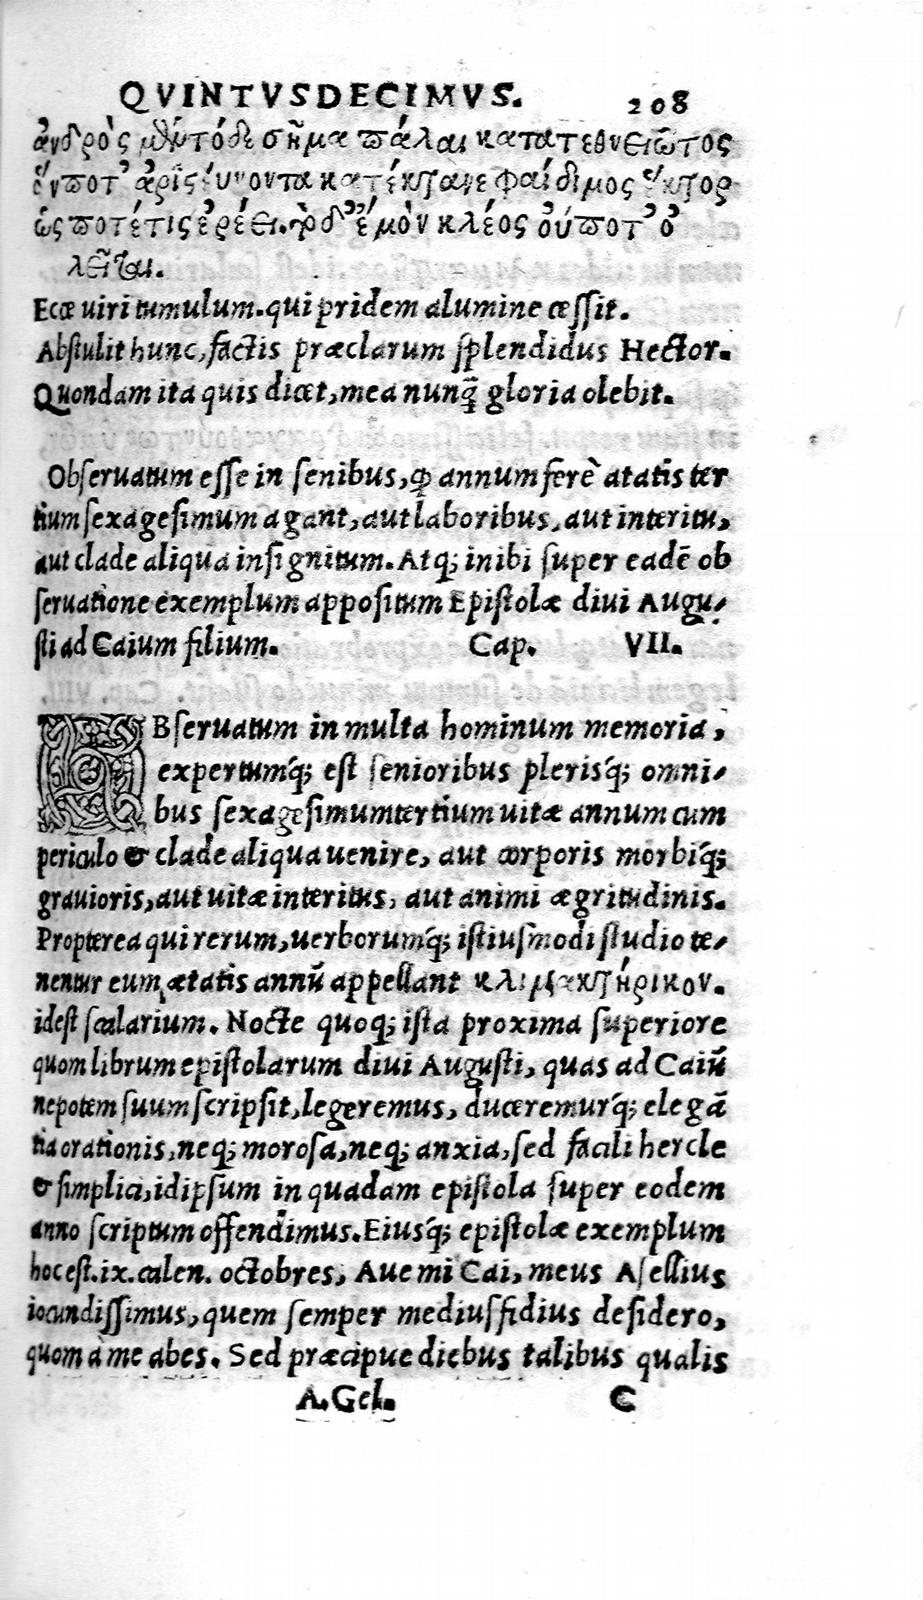 QVINTVSDECIMVS. 208
ἀνδρὸς μὲν τόδε σῆμα πάλαι κατατεθνειῶτος
ὅν ποτ' ἀριστεύοντα κατέκτανε φαίδιμος ἕκτορ
ὥς ποτέ τις ἐρέει. τὸ δ' ἐμὸν κλέος οὔποτ' ὀ
λεῖται.
Ecce uiri tumulum. qui pridem a lumine cessit.
Abstulit hunc, factis præclarum splendidus Hector.
Quondam ita quis dicet, mea nunq̃ gloria olebit.
Obseruatum esse in senibus, ꝙ annum ferè ætatis ter
tium sexagesimum agant, aut laboribus, aut interitu,
aut clade aliqua insignitum. Atq; inibi super eadē ob
seruatione exemplum appositum Epistolæ diui Augu-
sti ad Caium filium. Cap. VII.
OBseruatum in multa hominum memoria,
expertumq́; est senioribus plerisq́; omni-
bus sexagesimumtertium uitæ annum cum
periculo & clade aliqua uenire, aut corporis morbiq́;
grauioris, aut uitæ interitus, aut animi ægritudinis.
Propterea qui rerum, uerborumq́; istiusmodi studio te-
nentur eum ætatis annū appellant κλιμακτήρικον.
idest scalarium. Nocte quoq; ista proxima superiore
quom librum epistolarum diui Augusti, quas ad Caiū
nepotem suum scripsit, legeremus, duceremurq́; elegā
tia orationis, neq; morosa, neq; anxia, sed facili hercle
& simplici, id ipsum in quadam epistola super eodem
anno scriptum offendimus. Eiusq́; epistolæ exemplum
hoc est. ix. calen. octobres, Aue mi Cai, meus Asellius
iocundissimus, quem semper mediusfidius desidero,
quom à me abes. Sed præcipue diebus talibus qualis
A. Gel. C